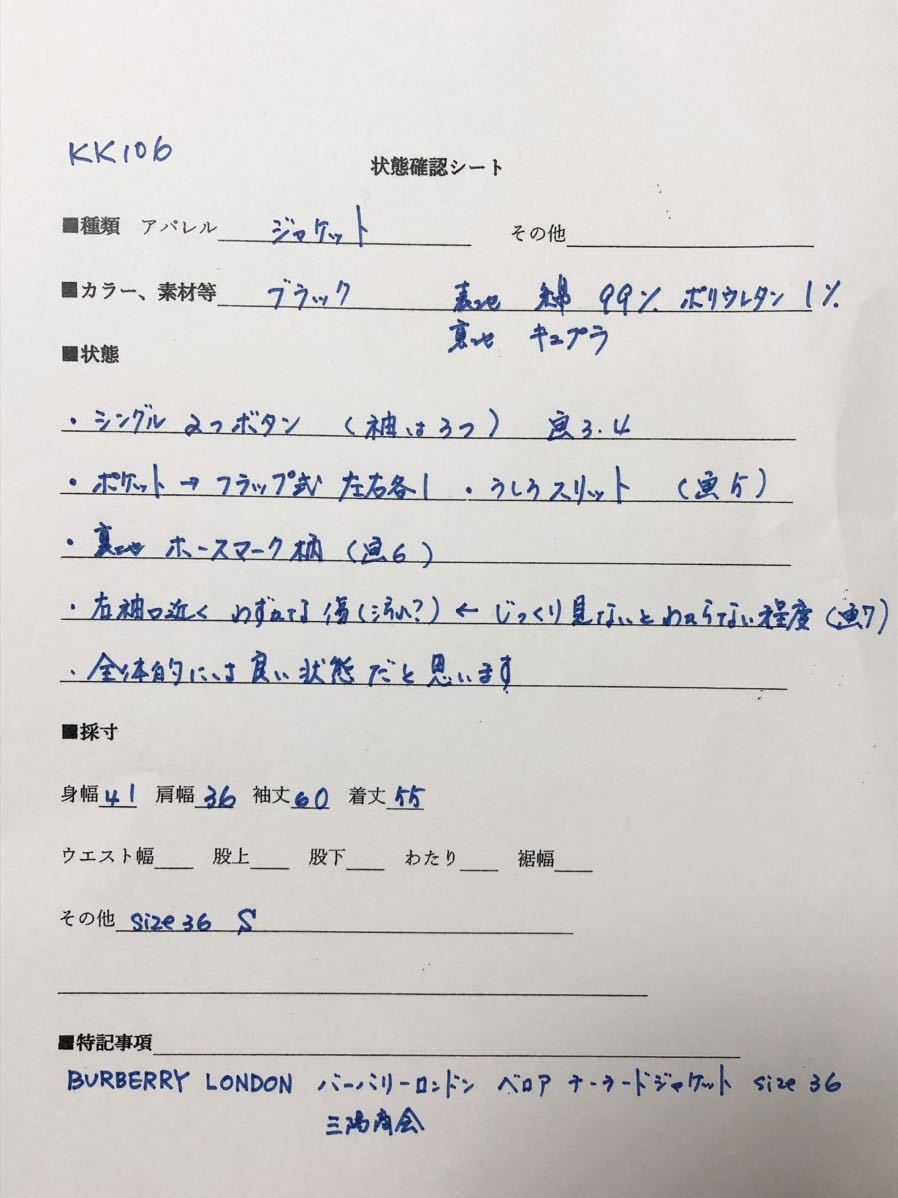 KK106
状態確認シート
■種類 アパレル ジャケット その他
■カラー、素材等 ブラック 表地 綿 99% ポリウレタン 1%
裏地 キュプラ
■状態
・シングル 2つボタン (袖は3つ) 画3.4
・ポケット→フラップ式 左右各1 ・うしろスリット (画5)
・裏地 ホースマーク柄 (画6)
・右袖口近く わずかな傷(汚れ?) ← じっくり見ないとわからない程度 (画7)
・全体的には良い状態だと思います
■採寸
身幅41 肩幅36 袖丈60 着丈55
ウエスト幅 股上 股下 わたり 裾幅
その他 size36 S
■特記事項
BURBERRY LONDON バーバリーロンドン ベロア テーラードジャケット size 36
三陽商会